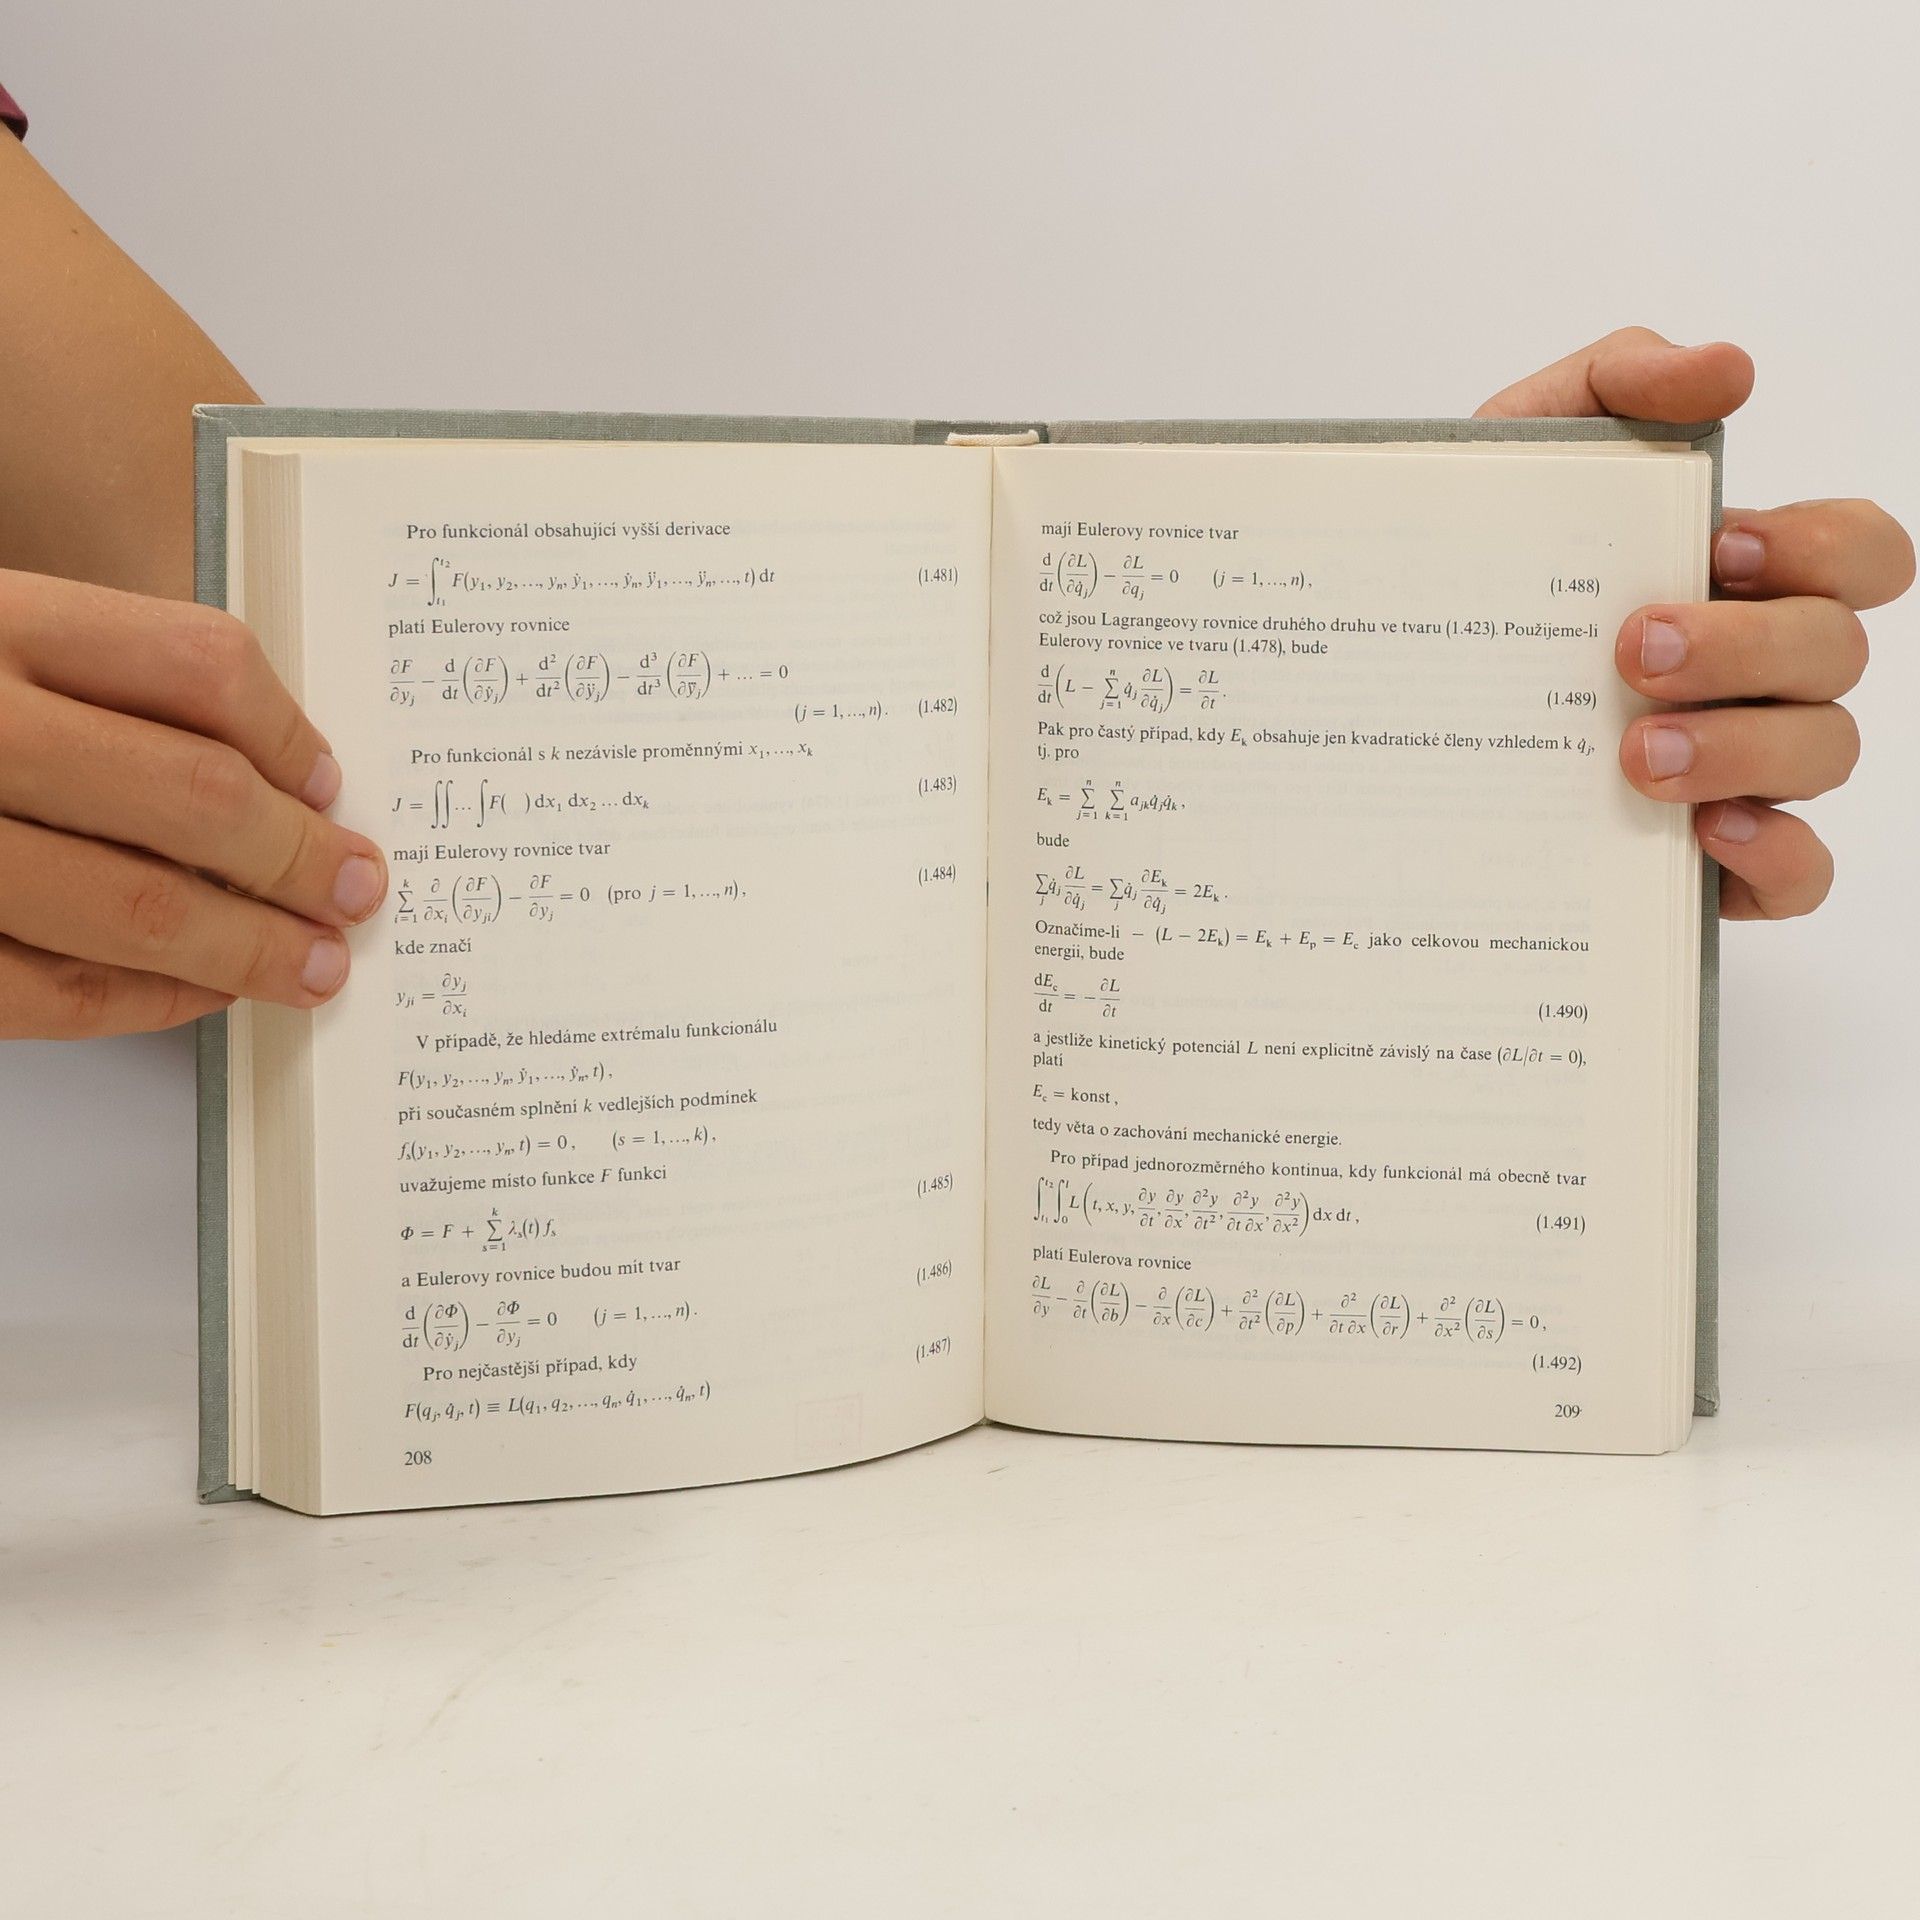 Pro funkcionál obsahující vyšší derivace
J = ∫_{t₁}^{t₂} F(y₁, y₂, ..., yₙ, ẏ₁, ..., ẏₙ, ÿ₁, ..., ÿₙ, ..., t) dt (1.481)
platí Eulerovy rovnice
∂F/∂yⱼ − d/dt (∂F/∂ẏⱼ) + d²/dt² (∂F/∂ÿⱼ) − d³/dt³ (∂F/∂y⃛ⱼ) + ... = 0
(j = 1, ..., n). (1.482)
Pro funkcionál s k nezávisle proměnnými x₁, ..., xₖ
J = ∫∫ ... ∫ F( ) dx₁ dx₂ ... dxₖ (1.483)
mají Eulerovy rovnice tvar
∑_{i=1}^{k} ∂/∂xᵢ (∂F/∂yⱼᵢ) − ∂F/∂yⱼ = 0 (pro j = 1, ..., n), (1.484)
kde značí
yⱼᵢ = ∂yⱼ/∂xᵢ
V případě, že hledáme extrémalu funkcionálu
F(y₁, y₂, ..., yₙ, ẏ₁, ..., ẏₙ, t),
při současném splnění k vedlejších podmínek
fₛ(y₁, y₂, ..., yₙ, t) = 0, (s = 1, ..., k),
uvažujeme místo funkce F funkci
Φ = F + ∑_{s=1}^{k} λₛ(t) fₛ (1.485)
a Eulerovy rovnice budou mít tvar
d/dt (∂Φ/∂ẏⱼ) − ∂Φ/∂yⱼ = 0 (j = 1, ..., n). (1.486)
Pro nejčastější případ, kdy
F(qⱼ, q̇ⱼ, t) ≡ L(q₁, q₂, ..., qₙ, q̇₁, ..., q̇ₙ, t) (1.487)
208
mají Eulerovy rovnice tvar
d/dt (∂L/∂q̇ⱼ) − ∂L/∂qⱼ = 0 (j = 1, ..., n), (1.488)
což jsou Lagrangeovy rovnice druhého druhu ve tvaru (1.423). Použijeme-li
Eulerovy rovnice ve tvaru (1.478), bude
d/dt (L − ∑_{j=1}^{n} q̇ⱼ ∂L/∂q̇ⱼ) = ∂L/∂t. (1.489)
Pak pro častý případ, kdy Eₖ obsahuje jen kvadratické členy vzhledem k q̇ⱼ,
tj. pro
Eₖ = ∑_{j=1}^{n} ∑_{k=1}^{n} aⱼₖq̇ⱼq̇ₖ,
bude
∑ⱼ q̇ⱼ ∂L/∂q̇ⱼ = ∑ⱼ q̇ⱼ ∂Eₖ/∂q̇ⱼ = 2Eₖ.
Označíme-li − (L − 2Eₖ) = Eₖ + Eₚ = E_c jako celkovou mechanickou
energii, bude
dE_c/dt = − ∂L/∂t (1.490)
a jestliže kinetický potenciál L není explicitně závislý na čase (∂L/∂t = 0),
platí
E_c = konst,
tedy věta o zachování mechanické energie.
Pro případ jednorozměrného kontinua, kdy funkcionál má obecně tvar
∫_{t₁}^{t₂} ∫_{0}^{l} L (t, x, y, ∂y/∂t, ∂y/∂x, ∂²y/∂t², ∂²y/∂t ∂x, ∂²y/∂x²) dx dt, (1.491)
platí Eulerova rovnice
∂L/∂y − ∂/∂t (∂L/∂b) − ∂/∂x (∂L/∂c) + ∂²/∂t² (∂L/∂p) + ∂²/∂t ∂x (∂L/∂r) + ∂²/∂x² (∂L/∂s) = 0,
(1.492)
209